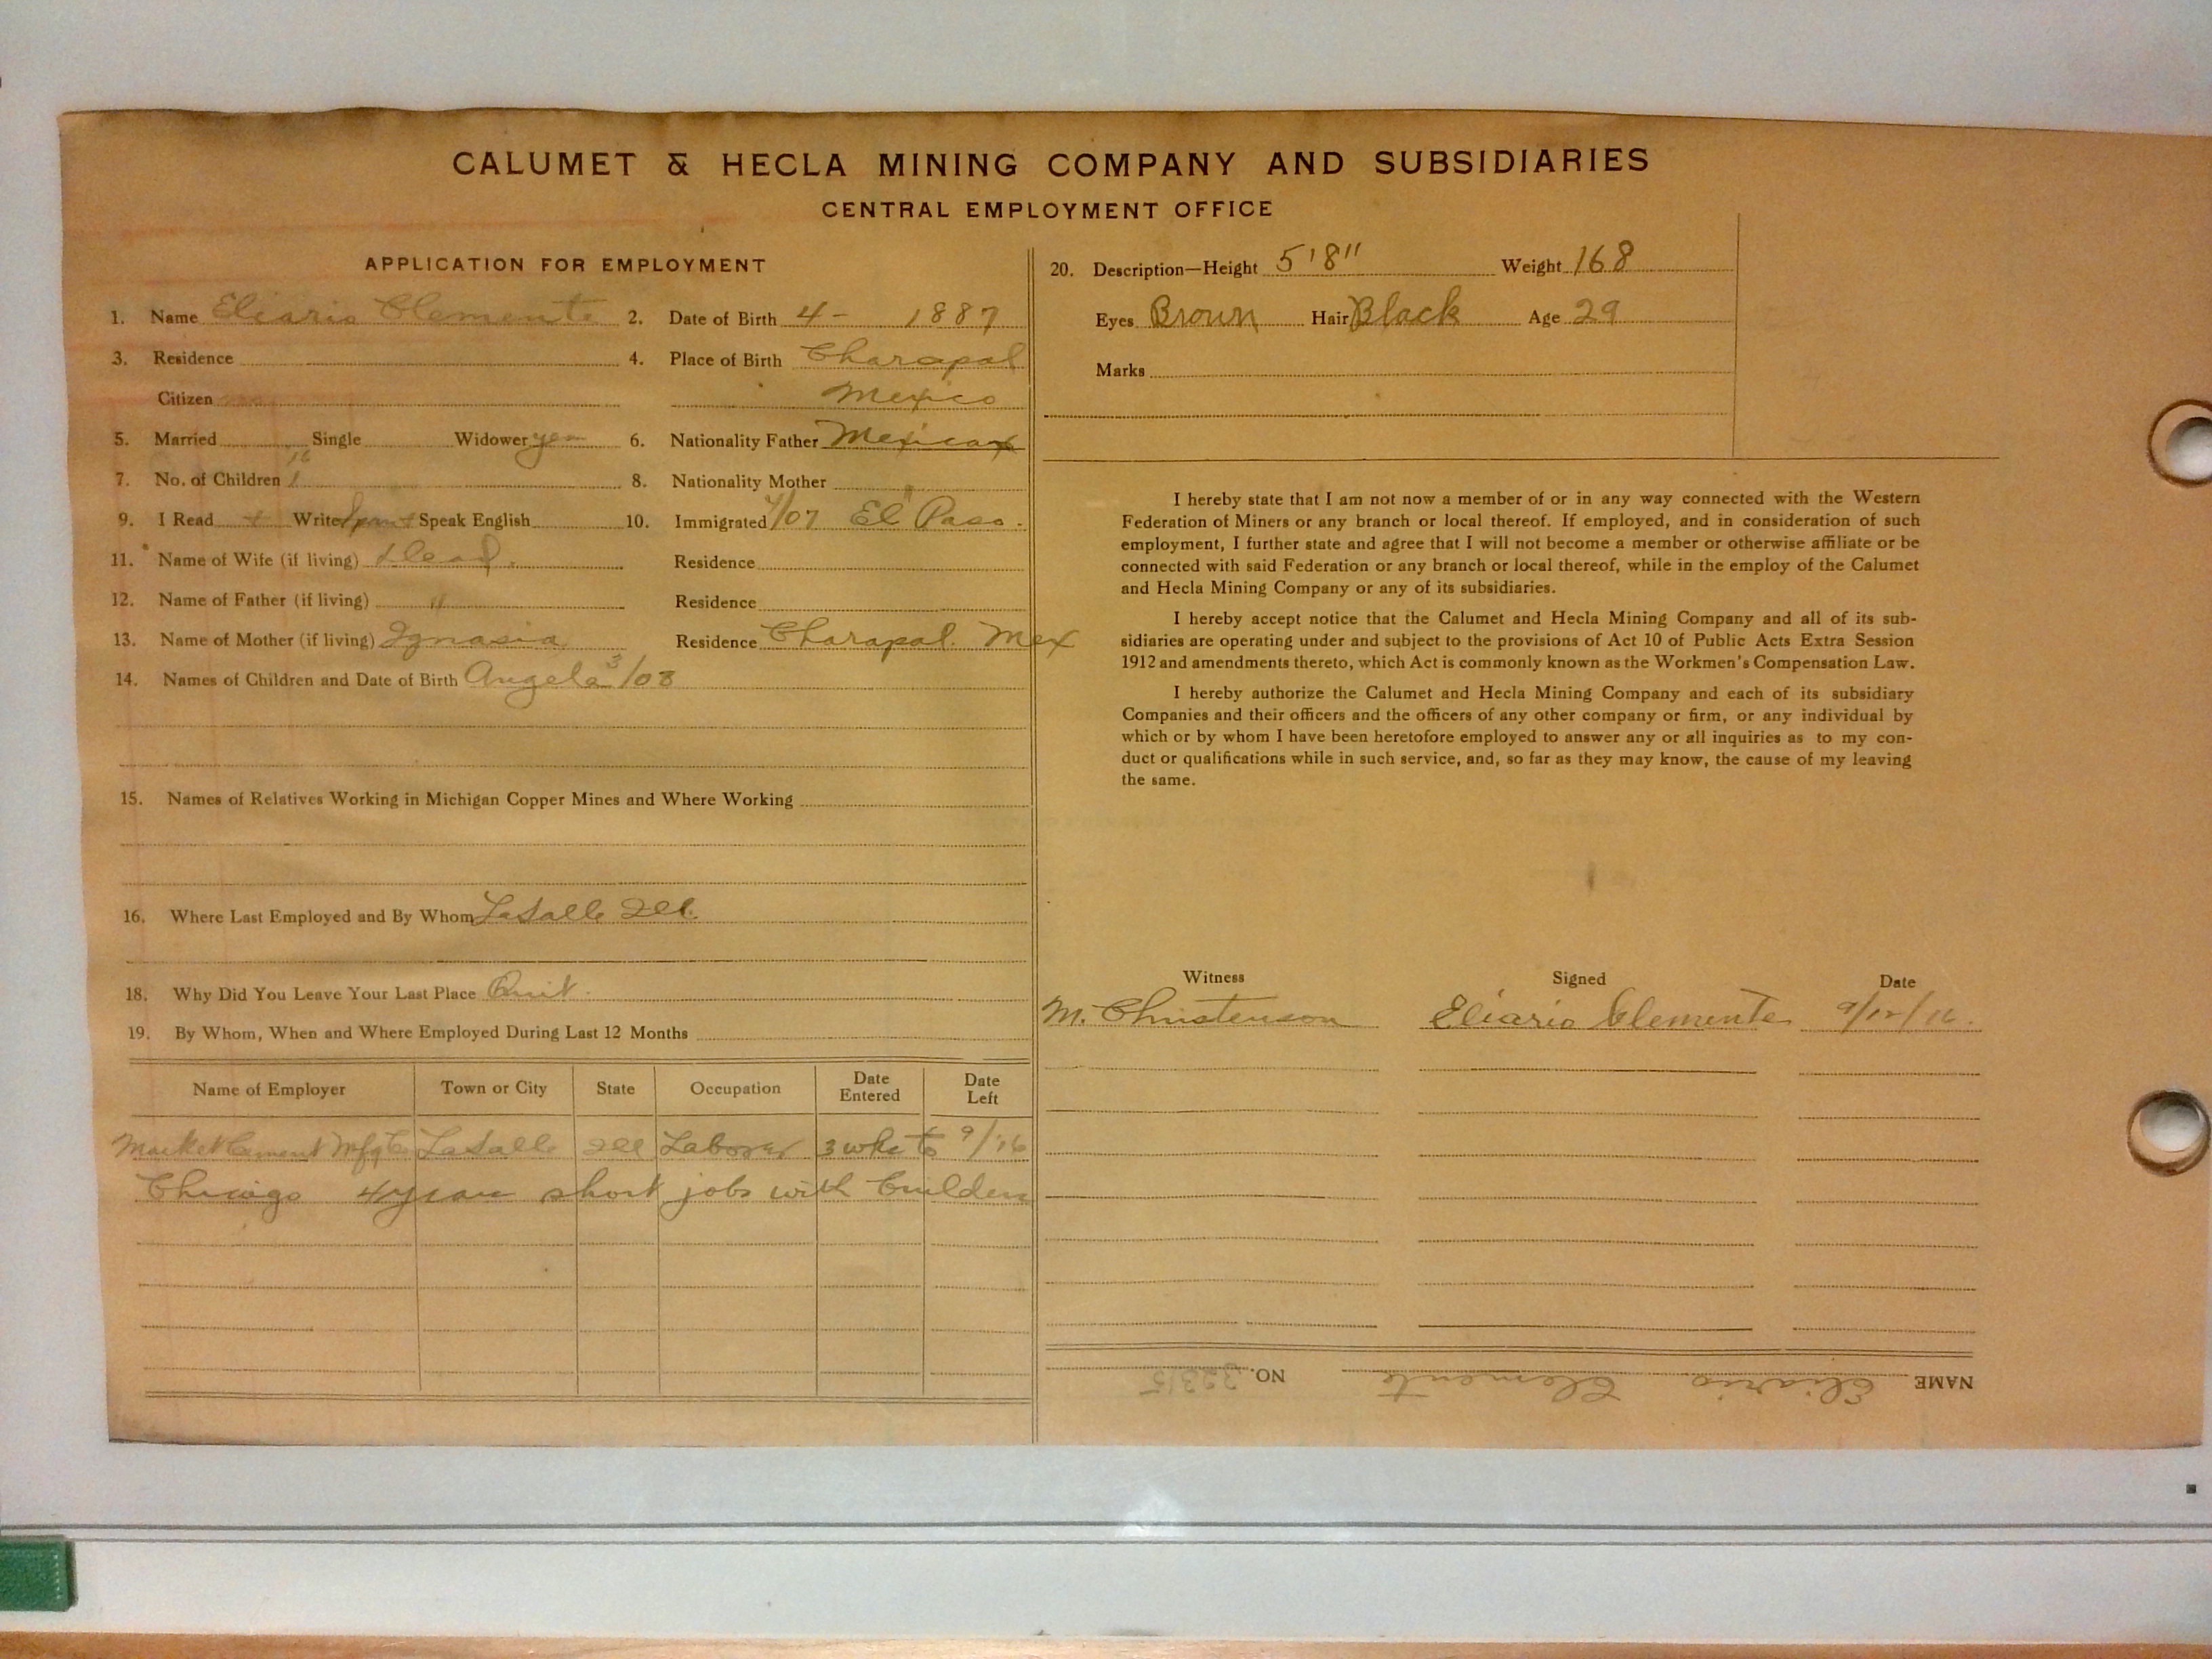 CALUMET & HECLA MINING COMPANY AND SUBSIDIARIES
CENTRAL EMPLOYMENT OFFICE
APPLICATION FOR EMPLOYMENT
1. Name Eliario Clemente 2. Date of Birth 4- 1887
3. Residence 4. Place of Birth Charapal
Citizen Mexico
5. Married Single Widower yes 6. Nationality Father Mexican
7. No. of Children 1 8. Nationality Mother "
9. I Read + Write Span + Speak English 10. Immigrated /07 El Paso.
11. Name of Wife (if living) dead. Residence
12. Name of Father (if living) " Residence
13. Name of Mother (if living) Ignasia Residence Charapal. Mex
14. Names of Children and Date of Birth Angela 3/08
15. Names of Relatives Working in Michigan Copper Mines and Where Working
16. Where Last Employed and By Whom LaSalle Ill.
18. Why Did You Leave Your Last Place Quit.
19. By Whom, When and Where Employed During Last 12 Months
Name of Employer Town or City State Occupation Date Entered Date Left
Cement Mfg Co LaSalle Ill Laborer 3 wks to 9/16
Chicago 4 years short jobs with builders
20. Description—Height 5'8" Weight 168
Eyes Brown Hair Black Age 29
Marks
I hereby state that I am not now a member of or in any way connected with the Western
Federation of Miners or any branch or local thereof. If employed, and in consideration of such
employment, I further state and agree that I will not become a member or otherwise affiliate or be
connected with said Federation or any branch or local thereof, while in the employ of the Calumet
and Hecla Mining Company or any of its subsidiaries.
I hereby accept notice that the Calumet and Hecla Mining Company and all of its sub-
sidiaries are operating under and subject to the provisions of Act 10 of Public Acts Extra Session
1912 and amendments thereto, which Act is commonly known as the Workmen's Compensation Law.
I hereby authorize the Calumet and Hecla Mining Company and each of its subsidiary
Companies and their officers and the officers of any other company or firm, or any individual by
which or by whom I have been heretofore employed to answer any or all inquiries as to my con-
duct or qualifications while in such service, and, so far as they may know, the cause of my leaving
the same.
Witness Signed Date
M. Christenson Eliario Clemente 9/12/16.
NAME Eliario Clemente NO. 32315